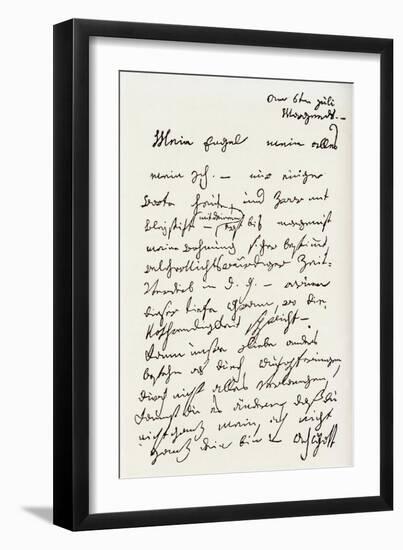 am 6ten Juli
Morgends. –
Mein Engel mein alles
mein Ich. – nur einige
Worte heute, und zwar mit
Bleystift – (mit deinem) erst bis morgen ist
meine Wohnung sicher bestimmt,
welcher Nichtswürdiger Zeit-
Verderb in d. g. – warum
dieser tiefe Gram, wo die
Nothwendigkeit spricht –
Kann unsre Liebe anders
bestehn als durch Aufopferungen,
durch nicht alles verlangen,
kannst du es ändern, daß du
nicht ganz mein, ich nicht
ganz dein bin – Ach Gott